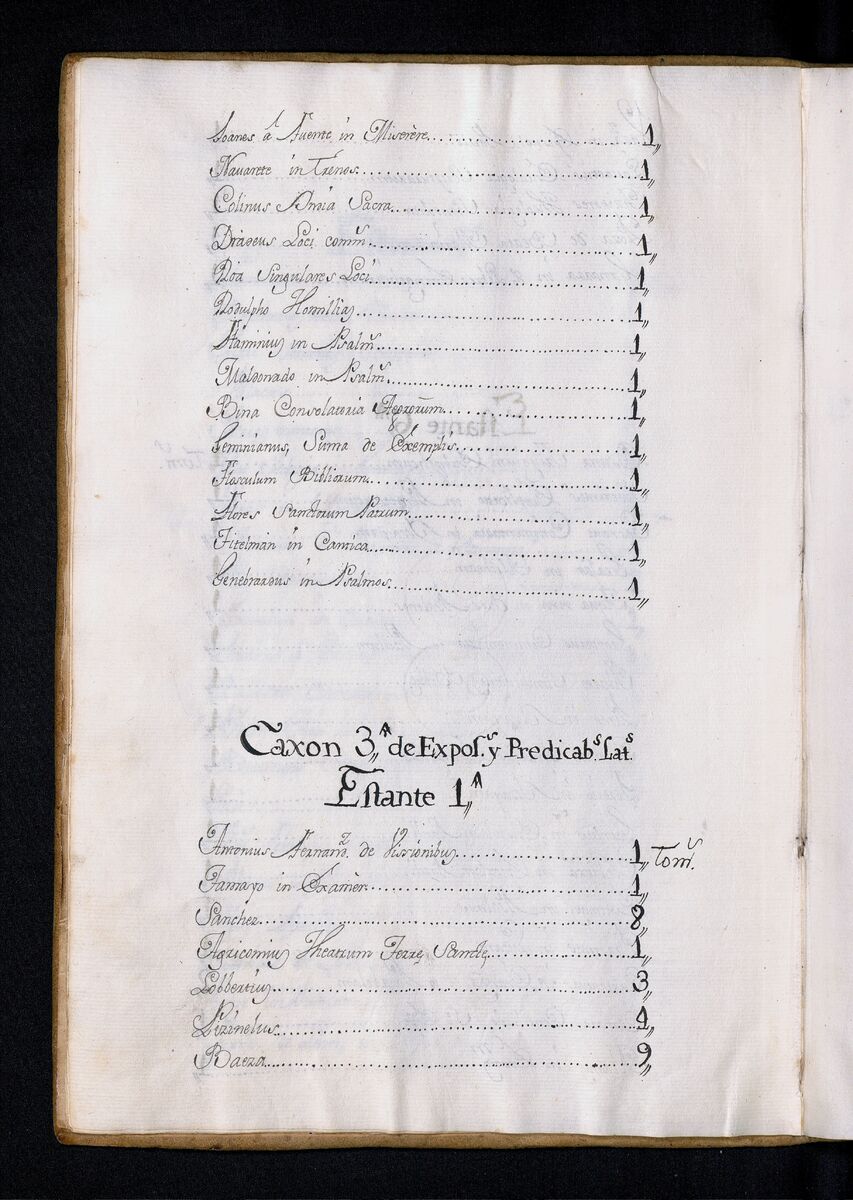 Ioanes á Fuente in Miserère........1,,
Navarete in Trénos........1,,
Colinus Ansia Sacra........1,,
Driadeus Loci comm.s........1,,
Roa Singulares Loci........1,,
Rodulpho Homilliaȝ........1,,
Flaminius in Psalm.s........1,,
Maldonado in Psalm.s........1,,
Bina Consolatoria Ægrorum........1,,
Geminianus, Suma de Exemplis........1,,
Flosculum Bibliorum........1,,
Flores Sanctorum Patrum........1,,
Titelmàn in Cantica........1,,
Genebrardus in Psalmos........1,,
Caxon 3,,ᴬ de Expos.s y Predicab.s Lat.s
Estante 1,,ᴬ
Antonius Fernan.z de Vissionibus........1,, Tom.s
Tamayo in Exámèr........1,,
Sanchez........8,,
Agricomius Theatrum Terrę Sanctę........1,,
Lobbertius........3,,
Pizinelius........4,,
Baeza........9,,